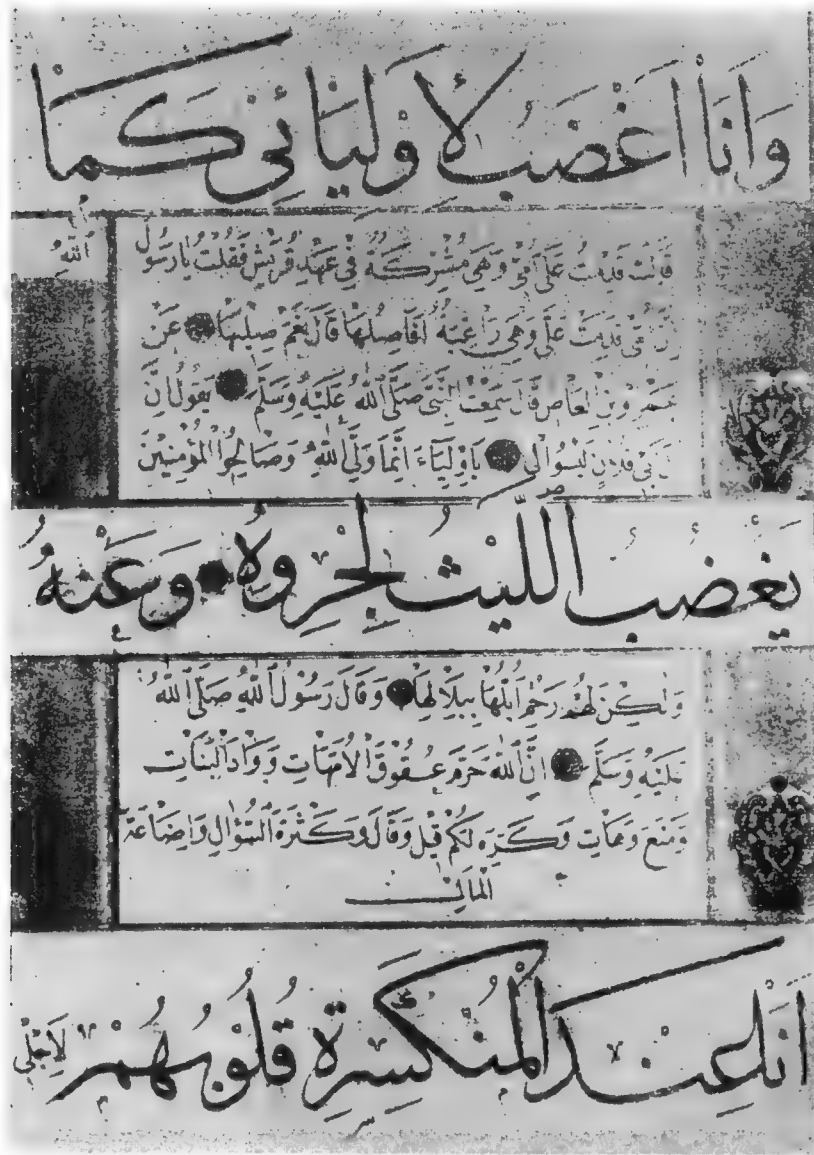 وَاَنَا اَغْضَبُ لِاَوْلِيَائِي كَمَا
قَالَتْ قَدِمَتْ عَلَيَّ اُمِّي وَهِيَ مُشْرِكَةٌ فِي عَهْدِ قُرَيْشٍ فَقُلْتُ يَا رَسُولَ
اللهِ
اِنَّ اُمِّي قَدِمَتْ عَلَيَّ وَهِيَ رَاغِبَةٌ اَفَاَصِلُهَا قَالَ نَعَمْ صِلِيهَا عَنْ
عَمْرِو بْنِ الْعَاصِ قَالَ سَمِعْتُ النَّبِيَّ صَلَّى اللهُ عَلَيْهِ وَسَلَّمَ يَقُولُ اِنَّ
بَنِي فُلَانٍ لَيْسُوا لِي بِاَوْلِيَاءَ اِنَّمَا وَلِيِّيَ اللهُ وَصَالِحُوا الْمُؤْمِنِينَ
يَغْضَبُ اللَّيْثُ لِجِرْوِهِ وَعَنْهُ
وَلٰكِنْ لَهُمْ رَحِمٌ اَبُلُّهَا بِبَلَالِهَا وَقَالَ رَسُولُ اللهِ صَلَّى اللهُ
عَلَيْهِ وَسَلَّمَ اِنَّ اللهَ حَرَّمَ عُقُوقَ الْاُمَّهَاتِ وَوَأْدَ الْبَنَاتِ
وَمَنَعَ وَهَاتِ وَكَرِهَ لَكُمْ قِيلَ وَقَالَ وَكَثْرَةَ السُّؤَالِ وَاِضَاعَةَ
الْمَالِ
اَنَا عِنْدَ الْمُنْكَسِرَةِ قُلُوبُهُمْ لِاَجْلِي